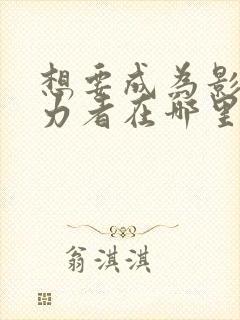 想要成为影
力者在哪里
翁淇淇